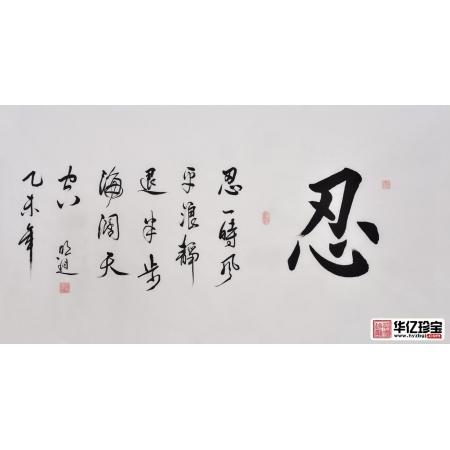 忍
忍一時風
平浪靜
退半步
海阔天
空
乙未年
华亿珍宝